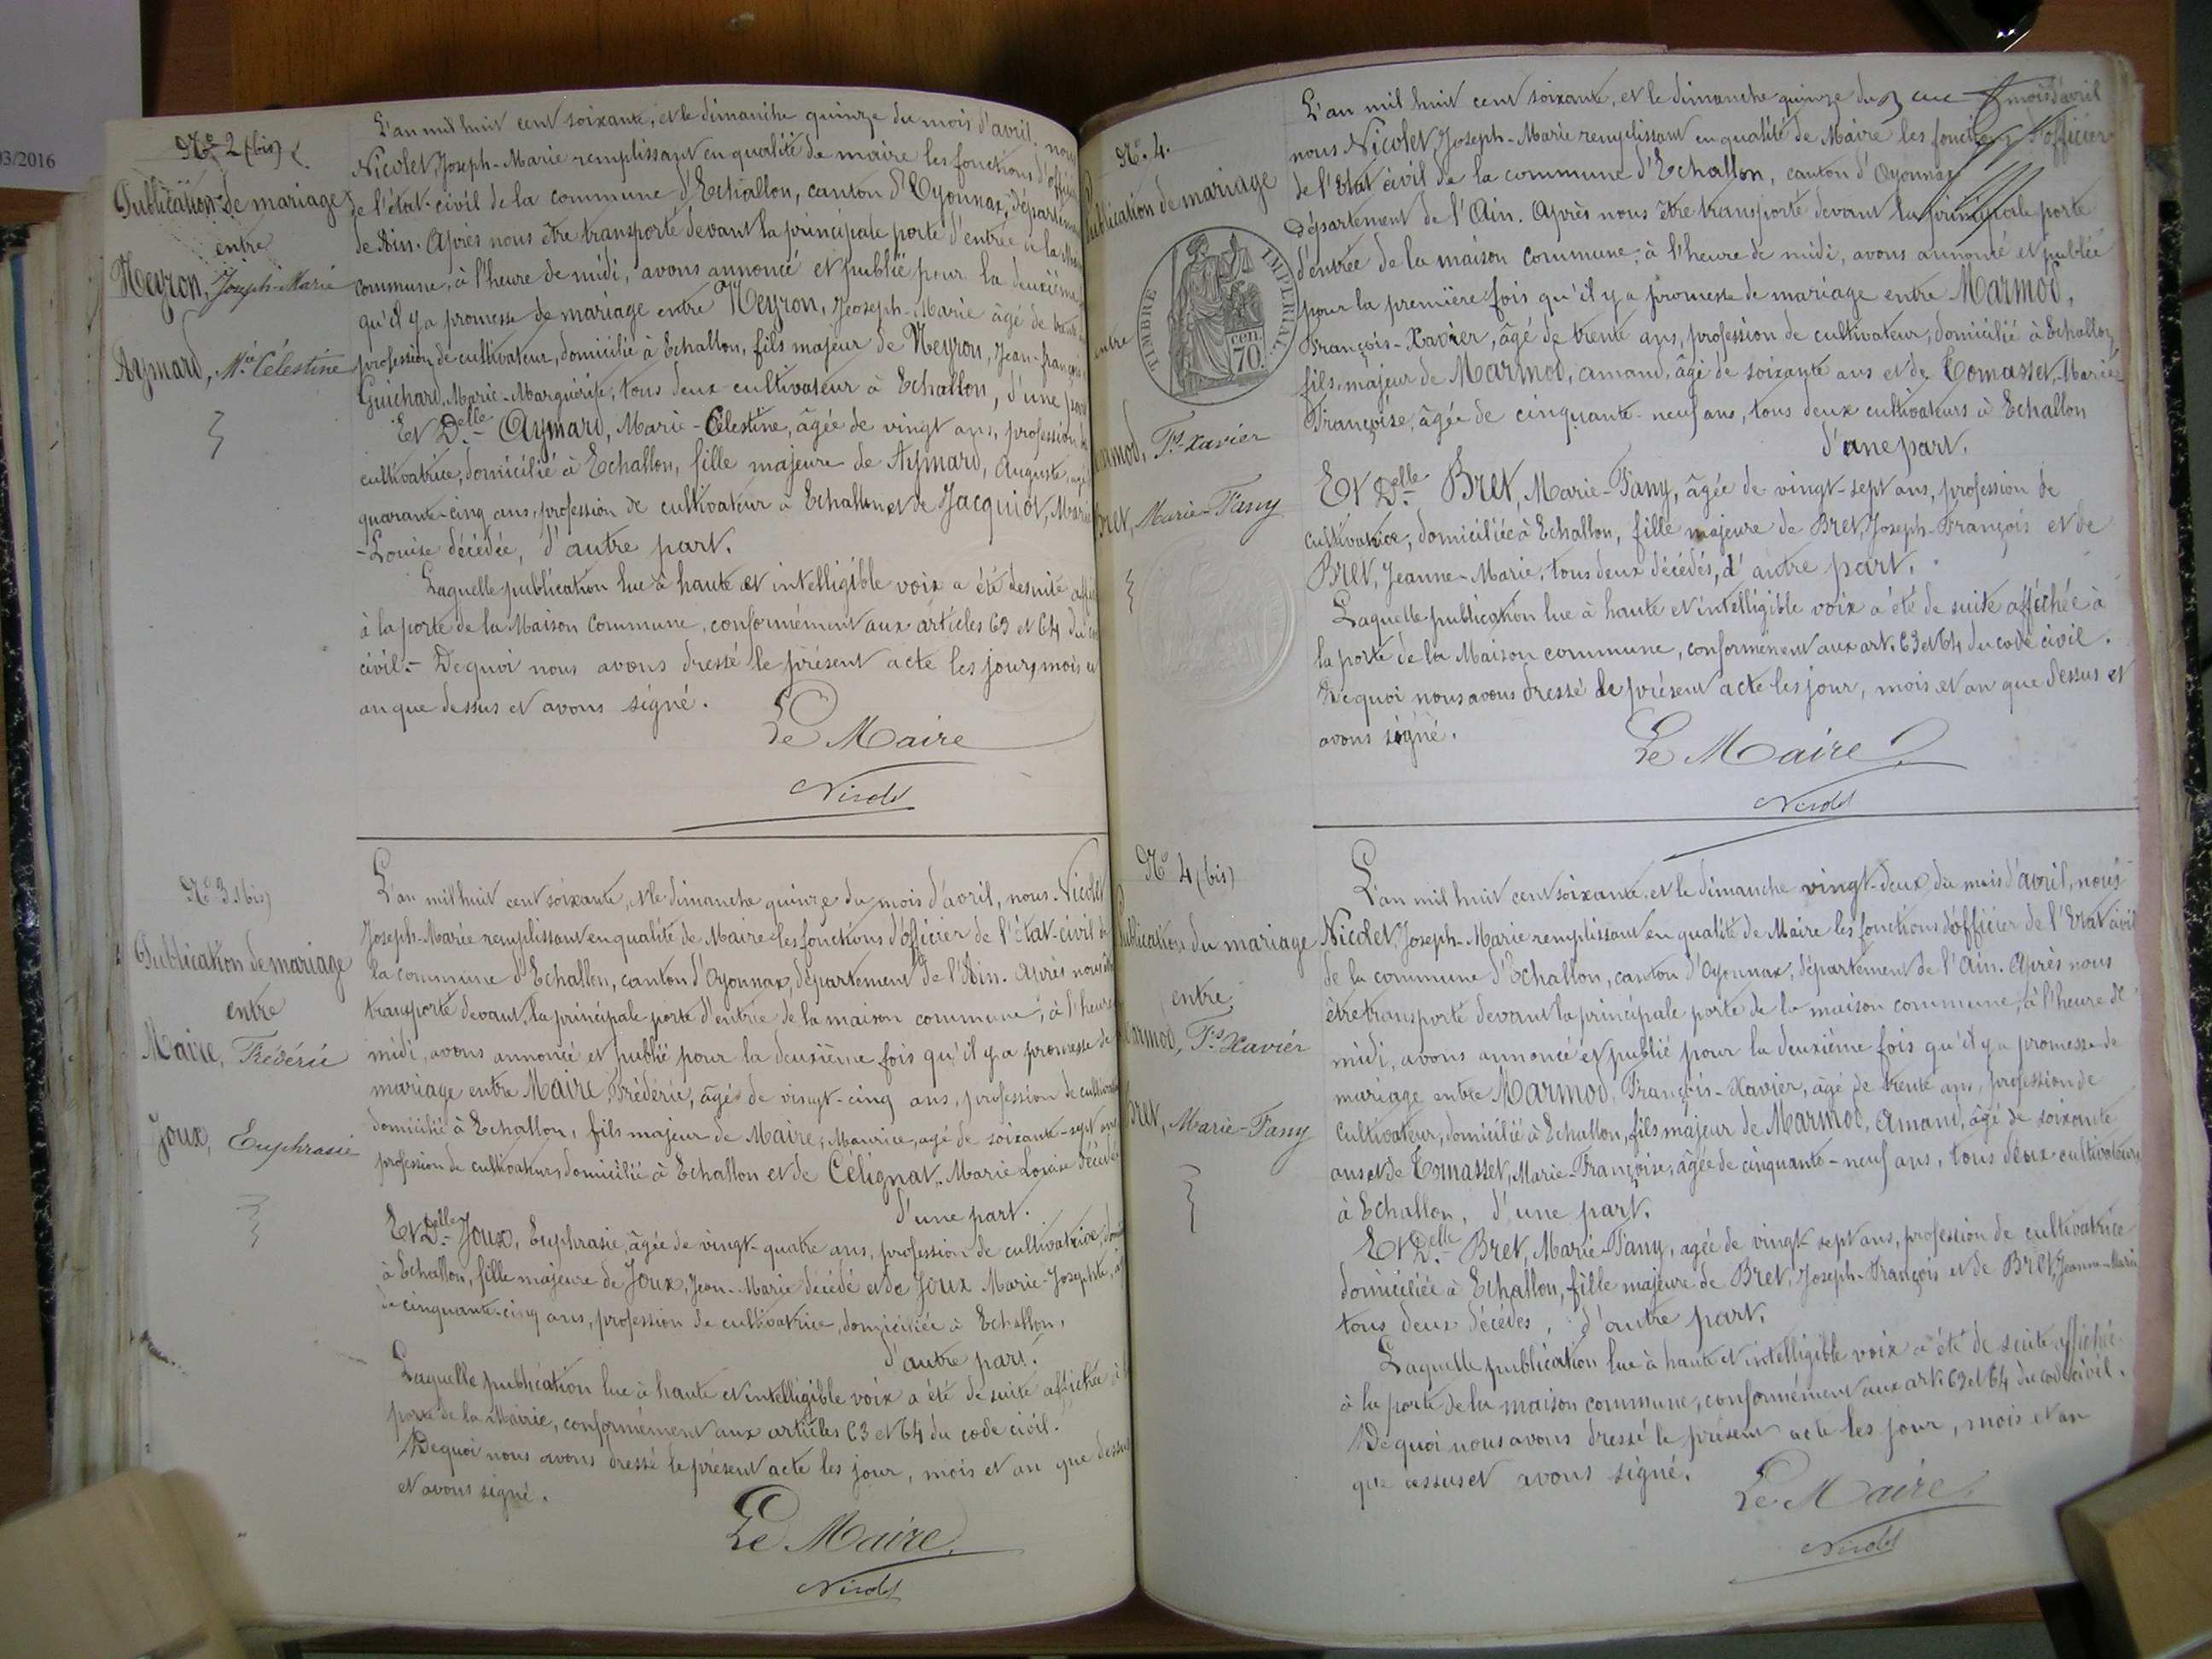 03/2016
No 2 (bis)
Publication de mariage
entre
Neyron, Joseph-Marie
Aymard, Mie Célestine
L'an mil huit cent soixante, et le dimanche quinze du mois d'avril, nous
Nicolet, Joseph-Marie remplissant en qualité de maire les fonctions d'offi
de l'état-civil de la commune d'Echallon, canton d'Oyonnax, départem
de Ain. Après nous être transporté devant la principale porte d'entrée de la
commune, à l'heure de midi, avons annoncé et publié pour la deuxième
qu'il y a promesse de mariage entre Neyron, Joseph-Marie âgé de
profession de cultivateur, domicilié à Echallon, fils majeur de Neyron, Jean-françois
Guichard, Marie-Marguerite, tous deux cultivateur à Echallon, d'une part
Et Delle Aymard, Marie-Célestine, âgée de vingt ans, profession de
cultivatrice, domicilié à Echallon, fille majeure de Aymard, Auguste, agé
quarante-cinq ans, profession de cultivateur à Echallon et de Jacquiot, Marie
-Louise décédée, d'autre part.
Laquelle publication lue à haute et intelligible voix a été desuite affi
à la porte de la Maison Commune, conformément aux articles 63 et 64 du
civil.- De quoi nous avons dressé le présent acte les jours, mois et
an que dessus et avons signé.
Le Maire
Nicolet
No 3 (bis)
Publication de mariage
entre
Maire, Frédéric
Joux, Euphrasie
L'an mil huit cent soixante, et le dimanche quinze du mois d'avril, nous Nicolet
Joseph-Marie remplissant en qualité de Maire les fonctions d'officier de l'état-civil de
la commune d'Echallon, canton d'Oyonnax, département de l'Ain. Après nous être
transporté devant la principale porte d'entrée de la maison commune, à l'heure
midi, avons annoncé et publié pour la deuxième fois qu'il y a promesse de
mariage entre Maire, Frédéric, âgé de vingt-cinq ans, profession de cultivateur
domicilié à Echallon, fils majeur de Maire, Maurice, agé de soixante-sept ans
profession de cultivateurs domicilié à Echallon et de Célignat, Marie Louise décédée
d'une part.
Et Delle Joux, Euphrasie, âgée de vingt-quatre ans, profession de cultivatrice,
à Echallon, fille majeure de Joux, Jean-Marie décédé et de Joux Marie-Josephte,
de cinquante-cinq ans, profession de cultivatrice, domiciliée à Echallon,
d'autre part.
Laquelle publication lue à haute et intelligible voix a été de suite affichée à
porte de la Mairie, conformément aux articles 63 et 64 du code civil.
De quoi nous avons dressé le présent acte les jour, mois et an que dessus
et avons signé.
Le Maire
Nicolet
No. 4.
Publication de mariage
TIMBRE IMPERIAL
70 cen
entre
Marmod, Fs Xavier
Bret, Marie-Fany
L'an mil huit cent soixante, et le dimanche quinze du mois d'avril
nous Nicolet, Joseph-Marie remplissant en qualité de Maire les fonctions d'officier
de l'Etat civil de la commune d'Echallon, canton d'Oyonnax
département de l'Ain. Après nous être transporté devant la principale porte
d'entrée de la maison commune, à l'heure de midi, avons annoncé et publiée
pour la première fois qu'il y a promesse de mariage entre Marmod,
François-Xavier, âgé de trente ans, profession de cultivateur, domicilié à Echallon
fils, majeur de Marmod, amand, âgé de soixante ans et de Tomasset, Marie
Françoise, âgée de cinquante-neuf ans, tous deux cultivateurs à Echallon
d'une part.
Et Delle Bret, Marie-Fany, âgée de vingt-sept ans, profession de
cultivatrice, domiciliée à Echallon, fille majeure de Bret, Joseph-François et de
Bret, Jeanne-Marie, tous deux décédés, d'autre part.
Laquelle publication lue à haute et intelligible voix a été de suite affichée à
la porte de la Maison commune, conformément aux art. 63 et 64 du code civil.
De quoi nous avons dressé le présent acte les jour, mois et an que dessus et
avons signé.
Le Maire
Nicolet
No 4 (bis)
Publication du mariage
entre
Marmod, Fs Xavier
Bret, Marie-Fany
L'an mil huit cent soixante et le dimanche vingt-deux du mois d'avril, nous
Nicolet, Joseph-Marie remplissant en qualité de Maire les fonctions d'officier de l'Etat civil
de la commune d'Echallon, canton d'Oyonnax, département de l'Ain. Après nous
être transporté devant la principale porte de la maison commune, à l'heure de
midi, avons annoncé et publié pour la deuxième fois qu'il y a promesse de
mariage entre Marmod, François-Xavier, âgé de trente ans, profession de
cultivateur, domicilié à Echallon, fils majeur de Marmod, Amand, âgé de soixante
ans et de Tomasset, Marie-Françoise, âgée de cinquante-neuf ans, tous deux cultivateurs
à Echallon, d'une part.
Et Delle Bret, Marie-Fany, agée de vingt sept ans, profession de cultivatrice
domiciliée à Echallon, fille majeure de Bret, Joseph-François et de Bret, Jeanne-Marie
tous deux décédés, d'autre part.
Laquelle publication lue à haute et intelligible voix a été de suite affichée
à la porte de la maison commune, conformément aux art. 63 et 64 du code civil.
De quoi nous avons dressé le présent acte les jour, mois et an
que dessus et avons signé.
Le Maire
Nicolet